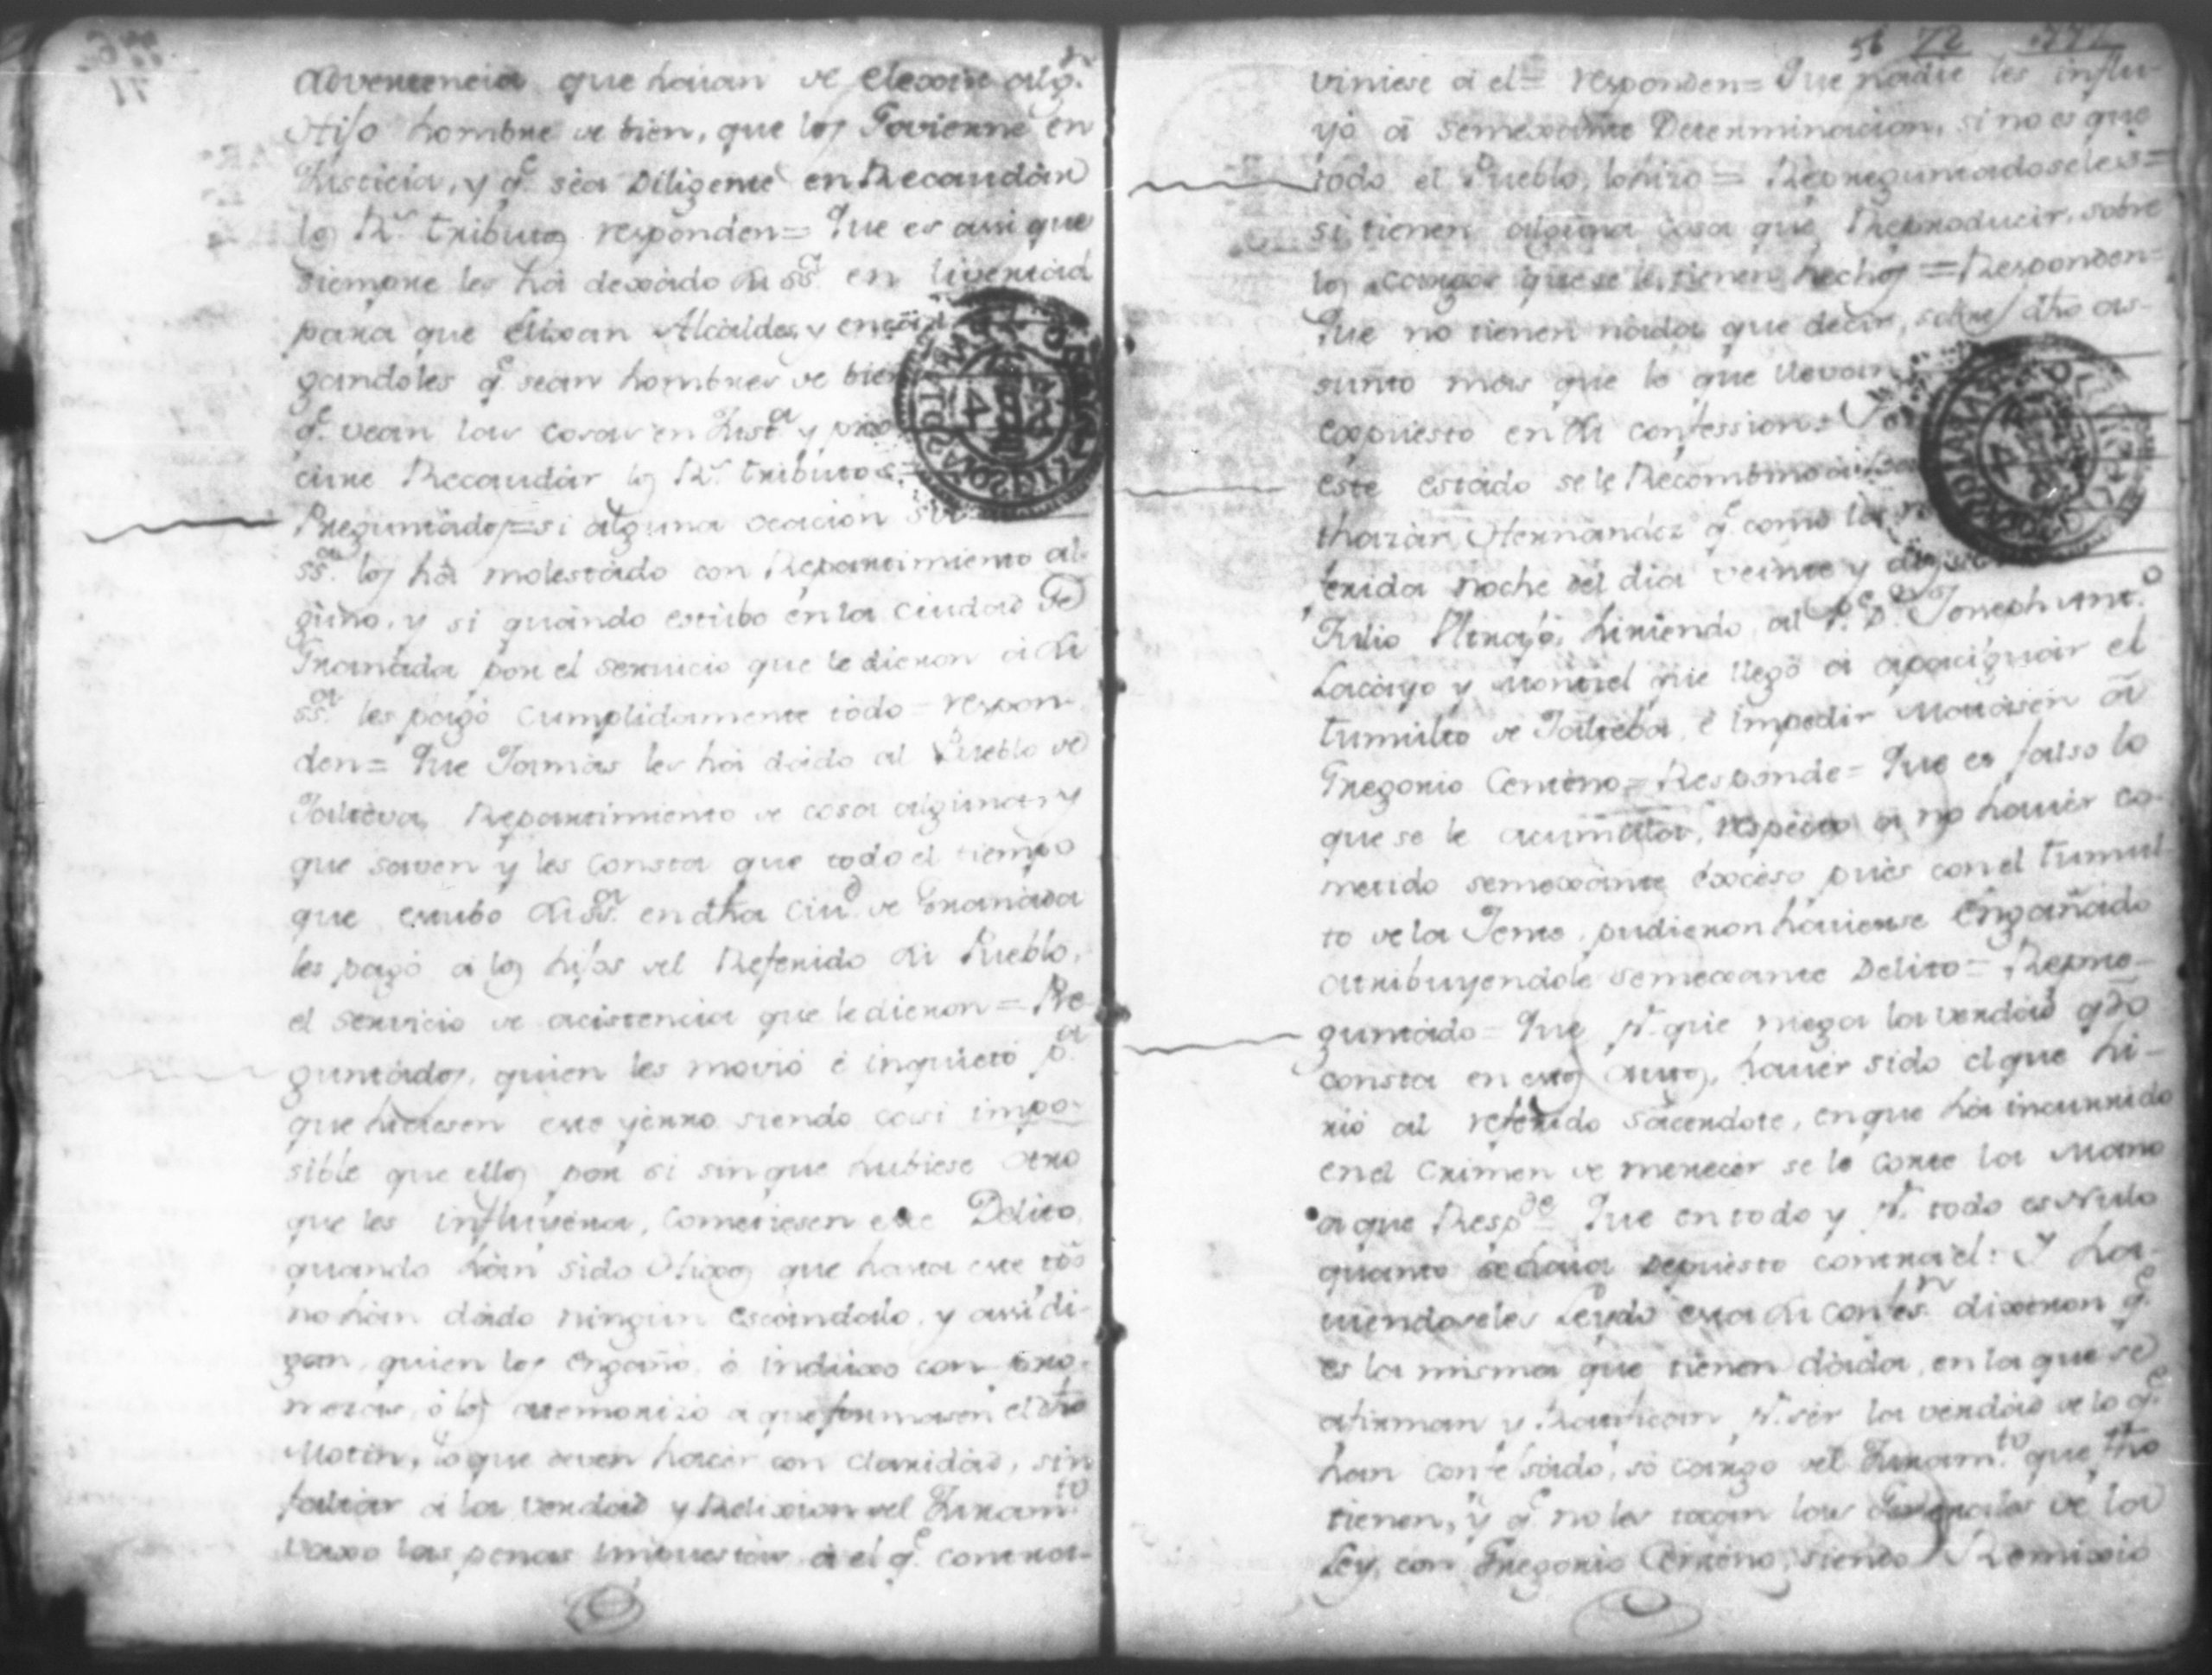 advertencia que havian de elexir alg.n
Hijo hombre de bien, que los Govierne en
Justicia, y q.e sea Diligente en Recaudar
los R.s tributos responden= Que es assi que
siempre les há dexado su ss.a en livertad
para que elixan Alcaldes, y encar
gandoles q.e sean hombres de bien
q.e vean las cosas en Just.a y pro
cure Recaudar los R.s tributos=
Preguntados=si alguna ocacion su
ss.a los há molestado con Repartimiento al-
guno, y si quando estubo en la Ciudad de
Granada por el servicio que le dieron a su
ss.a les pagó cumplidamente todo= respon-
den= Que Jamas les há dado al Pueblo de
Jalteva, Repartimiento de cosa alguna y
que saven y les consta que todo el tiempo
que estubo su ss.a en dha Ciu.d de Granada
les pagó a los hijos del Referido su Pueblo,
el servicio de acistencia que le dieron= Pre-
guntados, quien les movió é inquietó p.a
que hiciesen este yerro siendo casi impo-
sible que ellos por si sin que hubiese otro
que les influyera, cometiesen este Delito,
quando hán sido Hijos que hasta este tpo
no hán dado ningun escandalo, y assi di-
gan, quien los engañó, ó induxo con pro-
mesas, ó los atemorizó a que formasen el dho
Motin, lo que deven hacer con claridad, sin
faltar a la verdad y Relixion del Juram.to
vaxo las penas impuestas a el q.e contra-
56 72
viniese á el= responden= Que nadie les influ-
yó a semexante Determinacion, si no es que
todo el Pueblo, lo hizo= Repreguntadoseles=
si tienen alguna cosa que Reproducir, sobre
los cargos que se les tienen hechos= Responden=
Que no tienen nada que decir, sobre dho as-
sunto mas que lo que llevan
expuesto en su confession=
este estado se le Recombino a
thazar Hernandez q.e como la re
ferida noche del dia veinte y
Julio hiriendo, al P.e D.n Joseph Ant.o
Lacayo y Montiel que llegó a apaciguar el
tumulto de Jalteba, é impedir Matasen á
Gregorio Centeno= Responde= Que es falso lo
que se le acumula, respecto a no haver co-
metido semexante exceso pues con el tumul-
to de la Jente, pudieron haverse Engañado
atribuyendole semexante Delito= Repre-
guntado= Que p.r que niega la verdad q.do
consta en estos autos, haver sido el que hi-
rió al referido Sacerdote, en que há incurrido
en el Crimen de merecer se le corte la Mano
a que Resp.de Que en todo y p.r todo es Nulo
quanto se haia depuesto contra el: Y ha-
viendoseles Leydo esta su confes.n dixeron q.e
es la misma que tienen dada, en la que se
afirman y Ratifican p.r ser la verdad de lo q.e
han confesado, só cargo del Juram.to que fho
tienen, y q.e no les tocan las Generales de la
Ley, con Gregorio Centeno, siendo Remixio